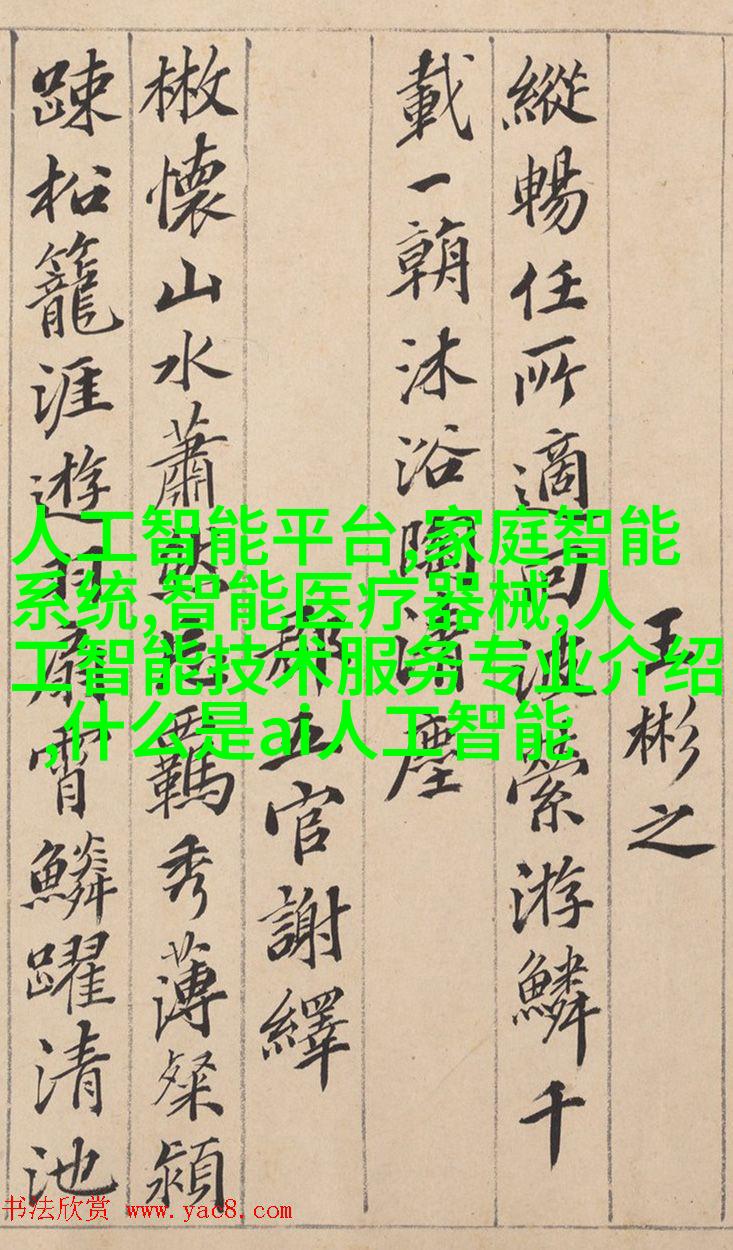 王彬之
縱暢任所適回波縈游鱗千
載一朝沐浴陶清塵
郡五官謝繹
㪚懷山水蕭然忘羈秀薄粲穎
踈松籠涯遊羽扇霄鱗躍清池
人工智能平台,家庭智能
系统,智能医疗器械,人
工智能技术服务专业介绍
,什么是ai人工智能
书法欣赏 www.yac8.com